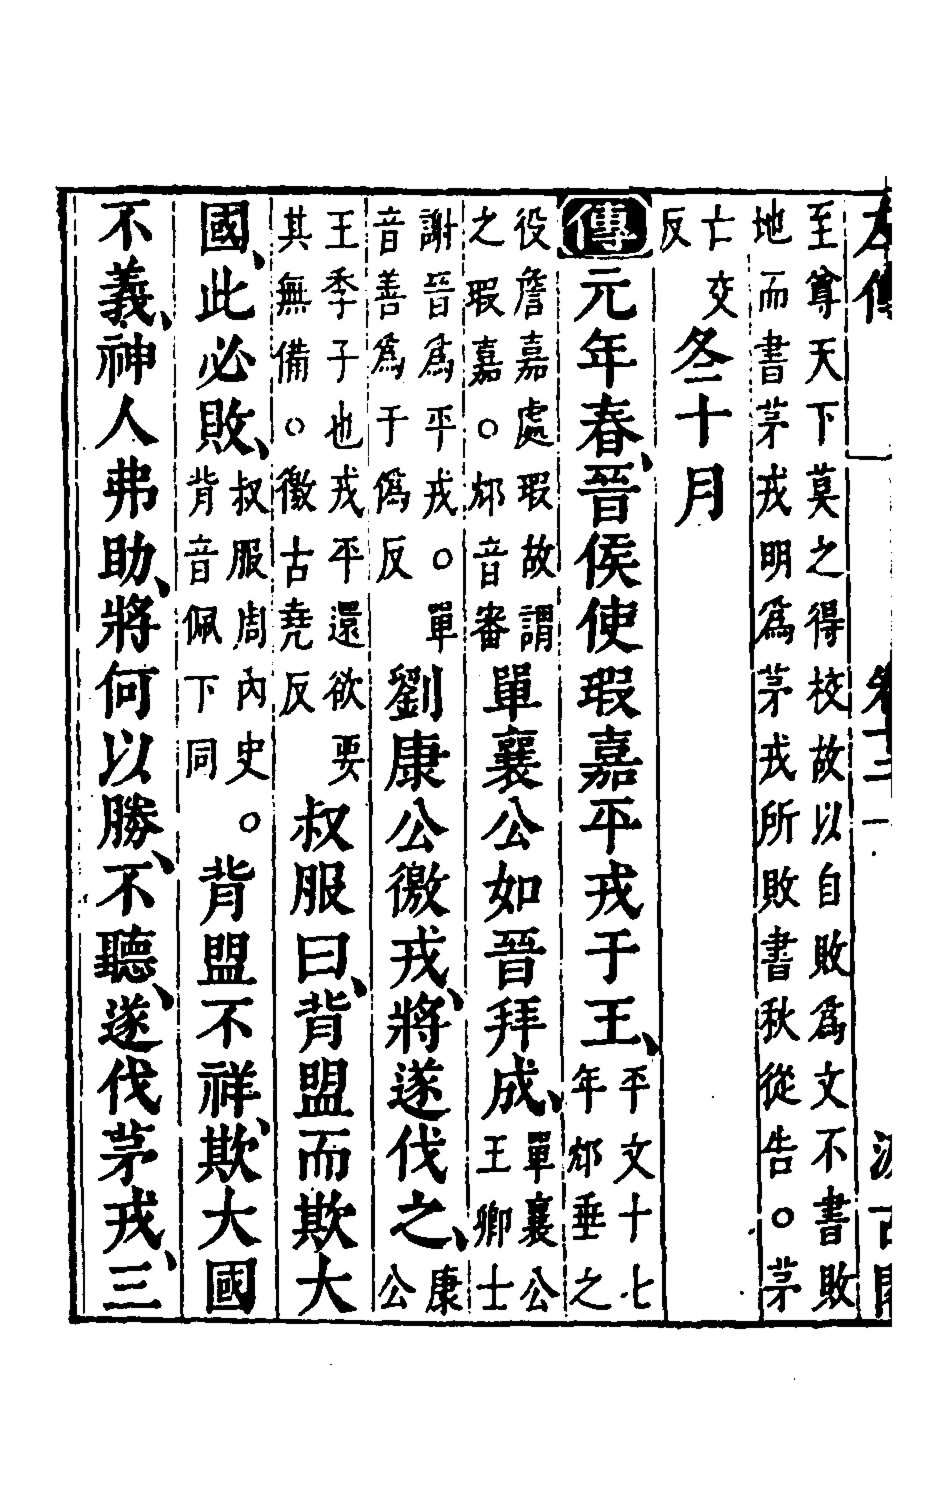 左傳
汲古閣
至尊天下莫之得校故以自敗爲文不書敗
地而書茅戎明爲茅戎所敗書秋從告。茅
亡交
反
冬十月
傳元年春、晉侯使瑕嘉平戎于王、
平文十七
年邥垂之
役詹嘉處瑕故謂
之瑕嘉。邥音審
單襄公如晉拜成、
單襄公
王卿士
謝晉爲平戎。單
音善爲于僞反
劉康公徼戎、將遂伐之、
康
公
王季子也戎平還欲要
其無備。徼古堯反
叔服曰、背盟而欺大
國、此必敗、
叔服周內史。
背音佩下同
背盟不祥、欺大國
不義、神人弗助、將何以勝、不聽、遂伐茅戎、三